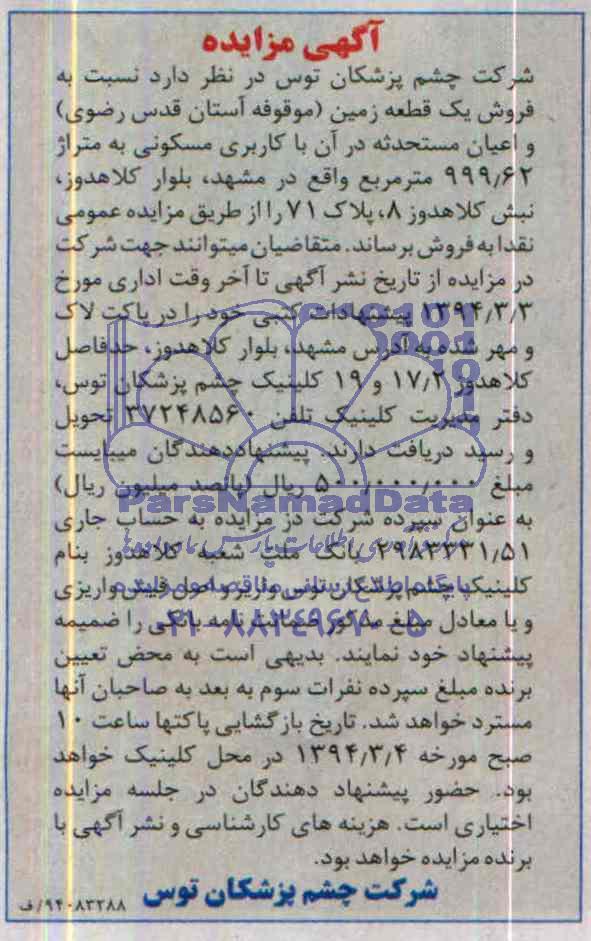 آگهی مزایده
شرکت چشم پزشکان توس در نظر دارد نسبت به
فروش یک قطعه زمین (موقوفه آستان قدس رضوی)
و اعیان مستحدثه در آن با کاربری مسکونی به متراژ
۹۹۹٫۶۲ مترمربع واقع در مشهد، بلوار کلاهدوز،
نبش کلاهدوز ۸، پلاک ۷۱ را از طریق مزایده عمومی
نقدا به فروش برساند. متقاضیان میتوانند جهت شرکت
در مزایده از تاریخ نشر آگهی تا آخر وقت اداری مورخ
۱۳۹۴٫۳٫۳ پیشنهادات کتبی خود را در پاکت لاک
و مهر شده به آدرس مشهد، بلوار کلاهدوز، حدفاصل
کلاهدوز ۱۷٫۲ و ۱۹ کلینیک چشم پزشکان توس،
دفتر مدیریت کلینیک تلفن ۳۷۲۴۸۵۶۰ تحویل
و رسید دریافت دارند. پیشنهاددهندگان میبایست
مبلغ ۵۰۰٫۰۰۰٫۰۰۰ ریال (پانصد میلیون ریال)
ParsNamadData
به عنوان سپرده شرکت در مزایده به حساب جاری
۲۹۸۳۳۳۱٫۵۱ بانک ملت شعبه کلاهدوز بنام
کلینیک چشم پزشکان توس واریز و اصل فیش واریزی
و یا معادل مبلغ مذکور ضمانت نامه بانکی را ضمیمه
۰۲۱-۸۸۳۴۹۶۷۰-۵
پیشنهاد خود نمایند. بدیهی است به محض تعیین
برنده مبلغ سپرده نفرات سوم به بعد به صاحبان آنها
مسترد خواهد شد. تاریخ بازگشایی پاکتها ساعت ۱۰
صبح مورخه ۱۳۹۴٫۳٫۴ در محل کلینیک خواهد
بود. حضور پیشنهاد دهندگان در جلسه مزایده
اختیاری است. هزینه های کارشناسی و نشر آگهی با
برنده مزایده خواهد بود.
شرکت چشم پزشکان توس
۹۴۰۸۳۲۸۸/ف